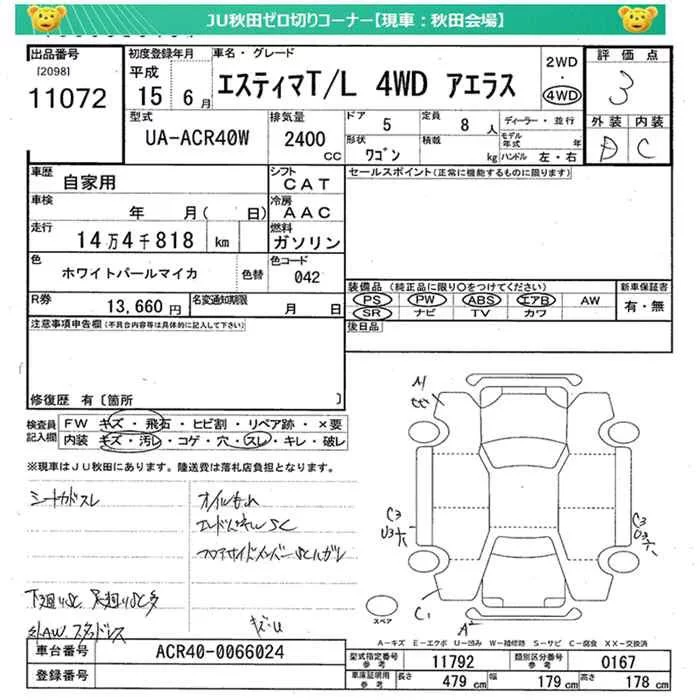 JU秋田ゼロ切りコーナー【現車：秋田会場】
出品番号 初度登録年月 車名・グレード 2WD ・ 4WD 評価点
[2098] 11072 平成 15 年 6 月 エスティマT/L 4WD アエラス 3
型式 排気量 ドア 定員 ディーラー・並行 外装 内装
UA-ACR40W 2400 CC 5 8 人 モデル年式 年 D C
形状 ワゴン 積載 kg ハンドル 左・右
車歴 自家用 シフト CAT セールスポイント(正常に機能するものに限ります)
車検 年 月( 日) 冷房 AAC
走行 14万4千818 km 燃料 ガソリン
色 ホワイトパールマイカ 色替 色コード 042
装備品 (純正品に限り○をつけてください) 新車保証書
R券 13,660 円 名変通知期限 月 日 PS PW ABS エアB AW 有・無
SR ナビ TV カワ
注意事項申告欄(不具合内容等は具体的に記入して下さい) 後日品
修復歴 有〔箇所 〕
検査員記入欄 FW キズ・飛石・ヒビ割・リペア跡・×要
内装 キズ・汚レ・コゲ・穴・スレ・キレ・破レ
※現車はJU秋田にあります。陸送費は落札店負担となります。
シートカドスレ オイルもれ
フロアサイドメンバー
C3
U3
C3
U3
C1
A2
スペア
A－キズ E－エクボ U－凹み W－補修跡 S－サビ C－腐食 XX－交換済
車台番号 ACR40-0066024 型式指定番号 参考 11792 類別区分番号 参考 0167
登録番号 車庫証明用 参考 長さ 479 cm 幅 179 cm 高さ 178 cm